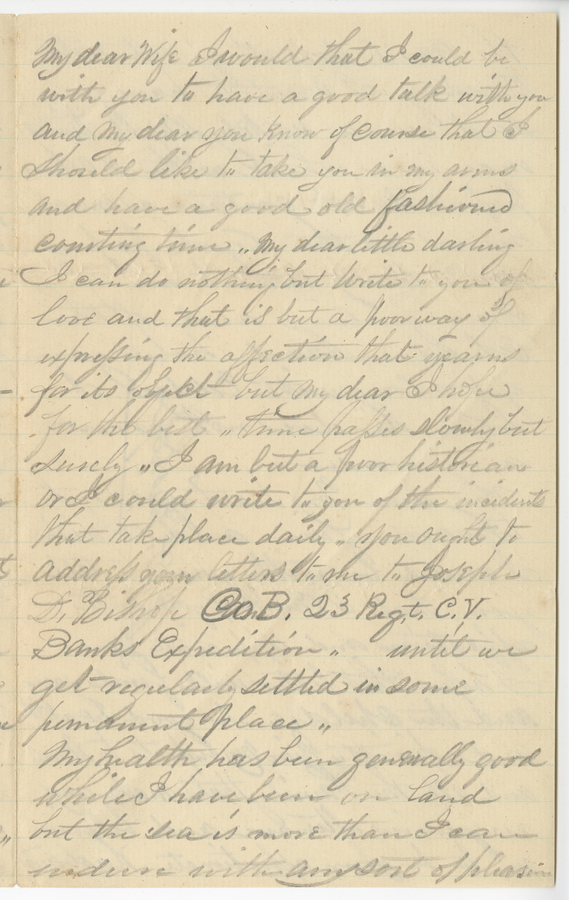 My dear Wife I would that I could be
with you to have a good talk with you
and My dear you know of course that I
should like to take you in my arms
and have a good old fashioned
courting time ,, My dear little darling
I can do nothing but Write to you of
love and that is but a poor way of
expressing the affection that yearns
for its object but My dear I hope
for the best ,, time passes slowly but
surely ,, I am but a poor historian
or I could write to you of the incidents
that take place daily ,, You ought to
address your letters to me to Joseph
D. Bishop Co. B. 23 Regt. C.V.
Banks Expedition ,, until we
get regularly settled in some
permanent place ,,
My health has been generally good
while I have been on land
but the sea is more than I can
endure with any sort of